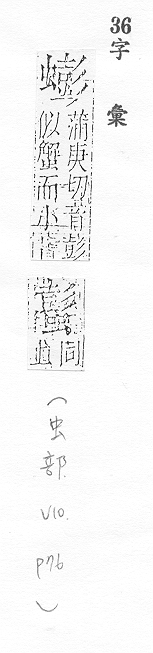 36字彙
蟛
蒲庚切音彭
似蟹而小
同
(虫部 V10. P76)